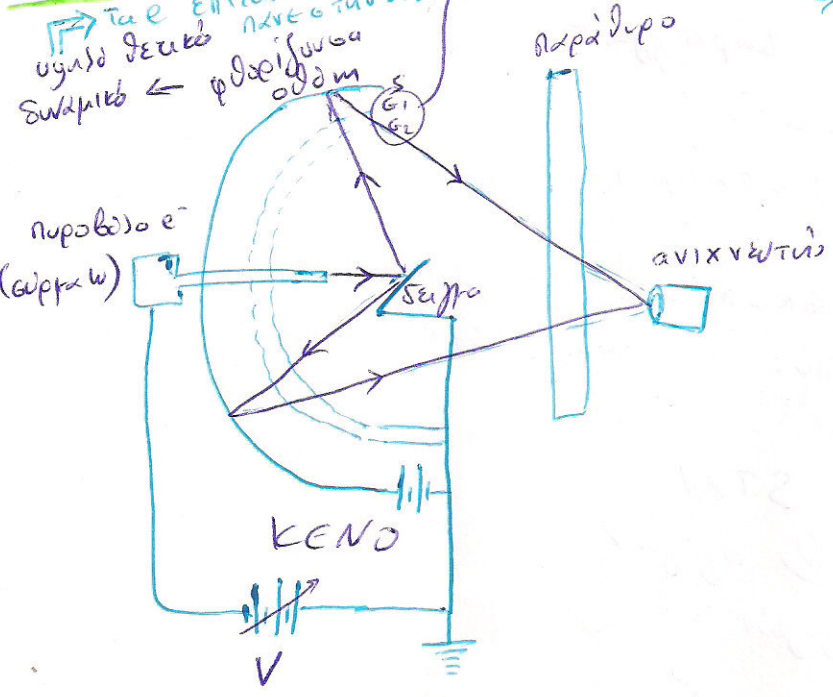 τα e επι
υψηλό θετικό
δυναμικό ← φθορίζουσα
οθόνη
S
G1
G2
παράθυρο
πυροβόλο e⁻
(σύρμα W)
δείγμα
ανιχνευτής
ΚΕΝΟ
V